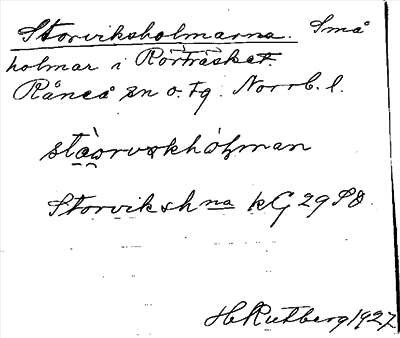 Storviksholmarna. Små
holmar i Rörträsket.
Råneå sn o. tg. Norrb. l.
Storviksh na kG 29 P8
H. Rutberg 1927